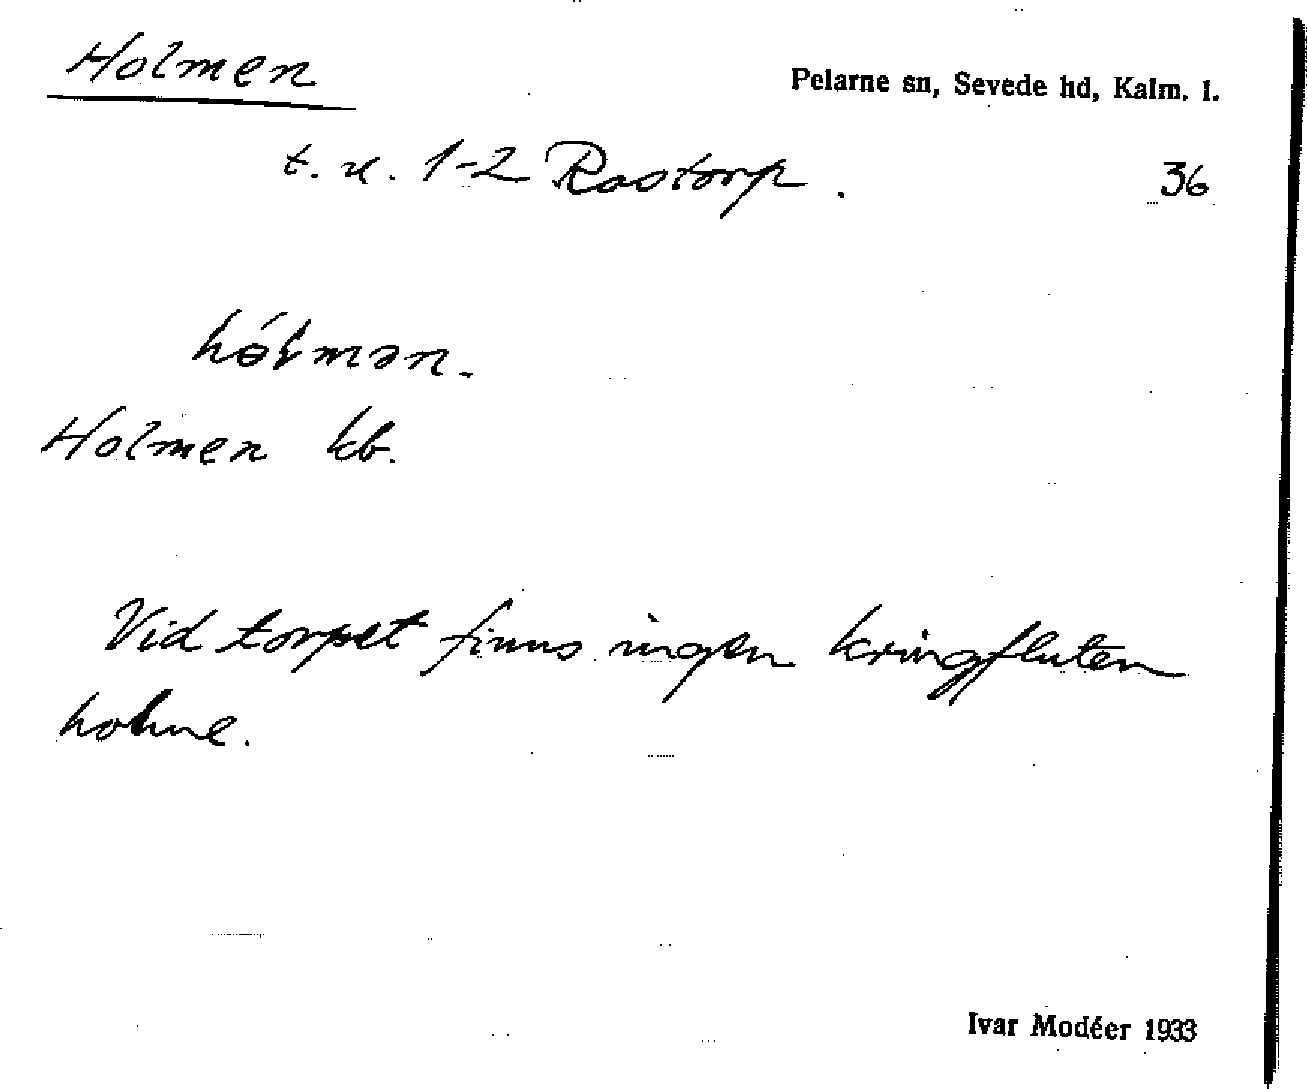 Holmen
Pelarne sn, Sevede hd, Kalm. l.
t. u. 1-2 Rostorp.
36
hólmən.
Holmen kb.
Vid torpet finns ingen kringfluten
holme.
Ivar Modéer 1933